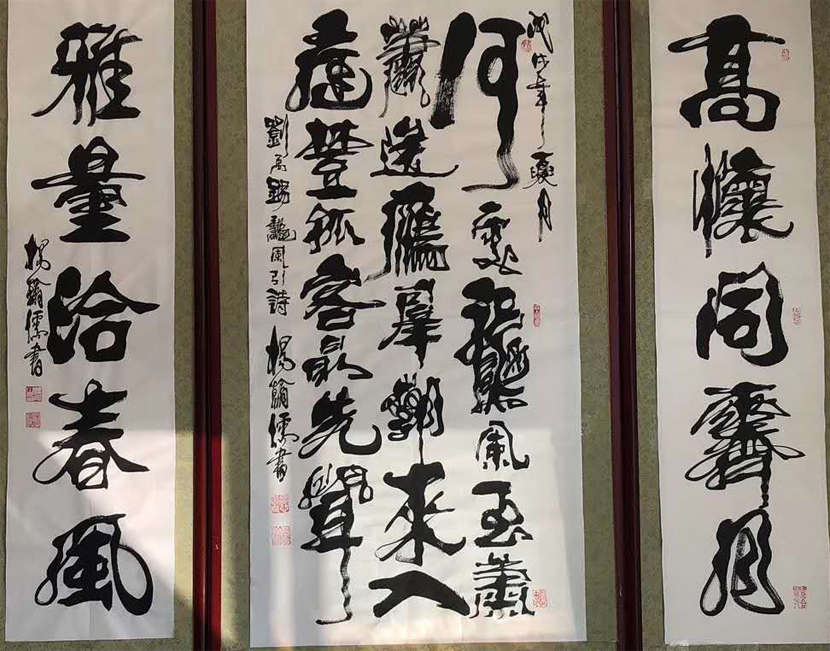 高懷同霽月
戊戌年之夏月
何處龝風至蕭
蕭送雁羣朝來入
庭樹孤客最先聞
劉禹錫龝風引詩 楊翰儒書
雅量洽春風
楊翰儒書